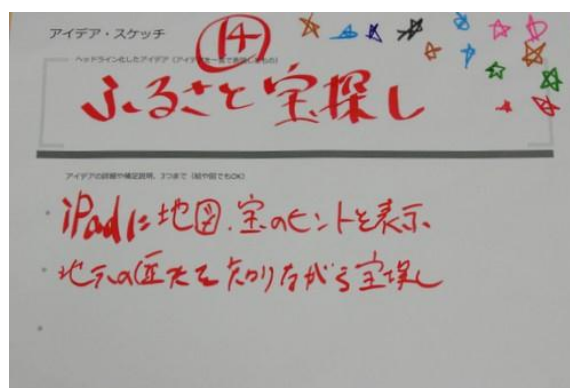 アイデア・スケッチ
14
ヘッドライン化したアイデア
ふるさと宝探し
アイデアの詳細や補足説明、3つまで（絵や図でもOK）
・iPadに地図、宝のヒントを表示、
・地元の歴史を知りながら宝探し